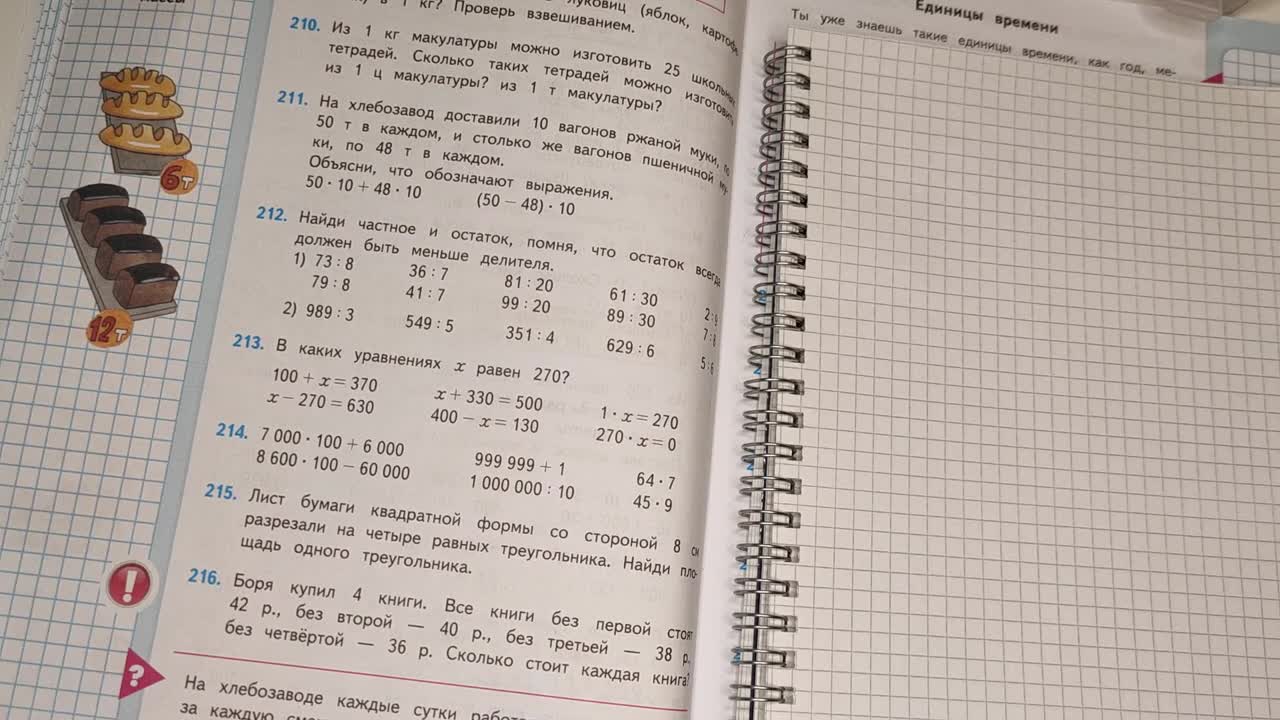 1 кг? Проверь взвешиванием.
луковиц (яблок,
210. Из 1 кг макулатуры можно изготовить 25 школьных
тетрадей. Сколько таких тетрадей можно изготовить
из 1 ц макулатуры? из 1 т макулатуры?
211. На хлебозавод доставили 10 вагонов ржаной муки, по
50 т в каждом, и столько же вагонов пшеничной му-
ки, по 48 т в каждом.
Объясни, что обозначают выражения.
50 · 10 + 48 · 10 (50 − 48) · 10
212. Найди частное и остаток, помня, что остаток всегда
должен быть меньше делителя.
1) 73 : 8 36 : 7 81 : 20 61 : 30 2 : 9
79 : 8 41 : 7 99 : 20 89 : 30 7 : 8
2) 989 : 3 549 : 5 351 : 4 629 : 6 5 : 6
213. В каких уравнениях x равен 270?
100 + x = 370 x + 330 = 500 1 · x = 270
x − 270 = 630 400 − x = 130 270 · x = 0
214. 7 000 · 100 + 6 000 999 999 + 1 64 · 7
8 600 · 100 − 60 000 1 000 000 : 10 45 · 9
215. Лист бумаги квадратной формы со стороной 8 см
разрезали на четыре равных треугольника. Найди пло-
щадь одного треугольника.
216. Боря купил 4 книги. Все книги без первой стоят
42 р., без второй — 40 р., без третьей — 38 р.,
без четвёртой — 36 р. Сколько стоит каждая книга?
На хлебозаводе каждые сутки
за каждую
6т
12т
!
?
Единицы времени
Ты уже знаешь такие единицы времени, как год, ме-